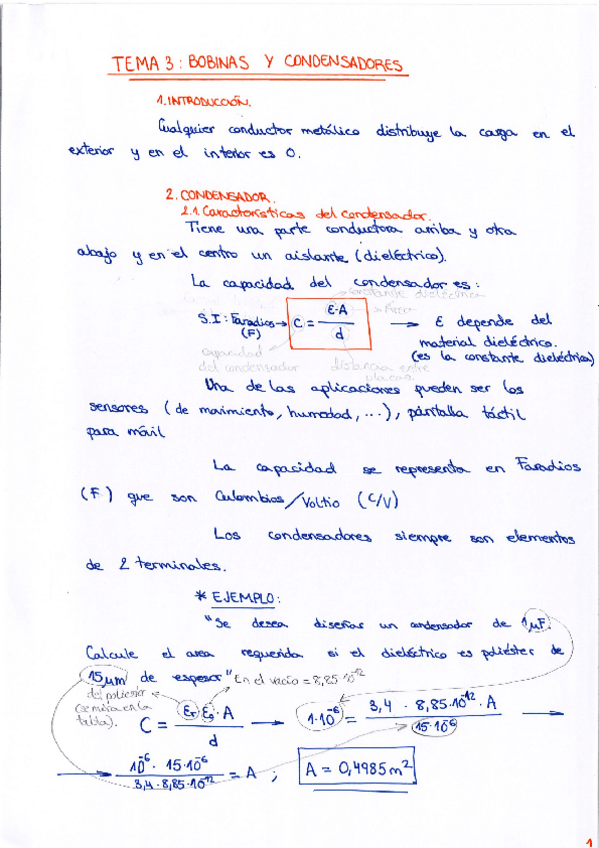 TEMA 3: BOBINAS Y CONDENSADORES
1. INTRODUCCIÓN.
Cualquier conductor metálico distribuye la carga en el
exterior y en el interior es 0.
2. CONDENSADOR.
2.1. Características del condensador.
Tiene una parte conductora arriba y otra
abajo y en el centro un aislante (dieléctrico).
La capacidad del condensador es:
constante dieléctrica
S.I: Faradios → C = ε·A / d → Área → ε depende del
(F) material dieléctrico.
(es la constante dieléctrica)
capacidad distancia entre
del condensador placas.
Una de las aplicaciones pueden ser los
sensores (de movimiento, humedad, ...), pantalla táctil
para móvil
La capacidad se representa en Faradios
(F) que son Culombios/Voltio (C/V)
Los condensadores siempre son elementos
de 2 terminales.
* EJEMPLO:
"Se desea diseñar un condensador de 1μF.
Calcule el area requerida si el dieléctrico es poliéster de
15μm de espesor" En el vacío = 8,85·10⁻¹²
del poliéster
(se mira en la
tabla).
C = εr·ε0·A / d → 1·10⁻⁶ = 3,4 · 8,85·10⁻¹² · A / 15·10⁻⁶ →
→ 10⁻⁶ · 15·10⁻⁶ / 3,4 · 8,85·10⁻¹² = A ; A = 0,4985 m²
1